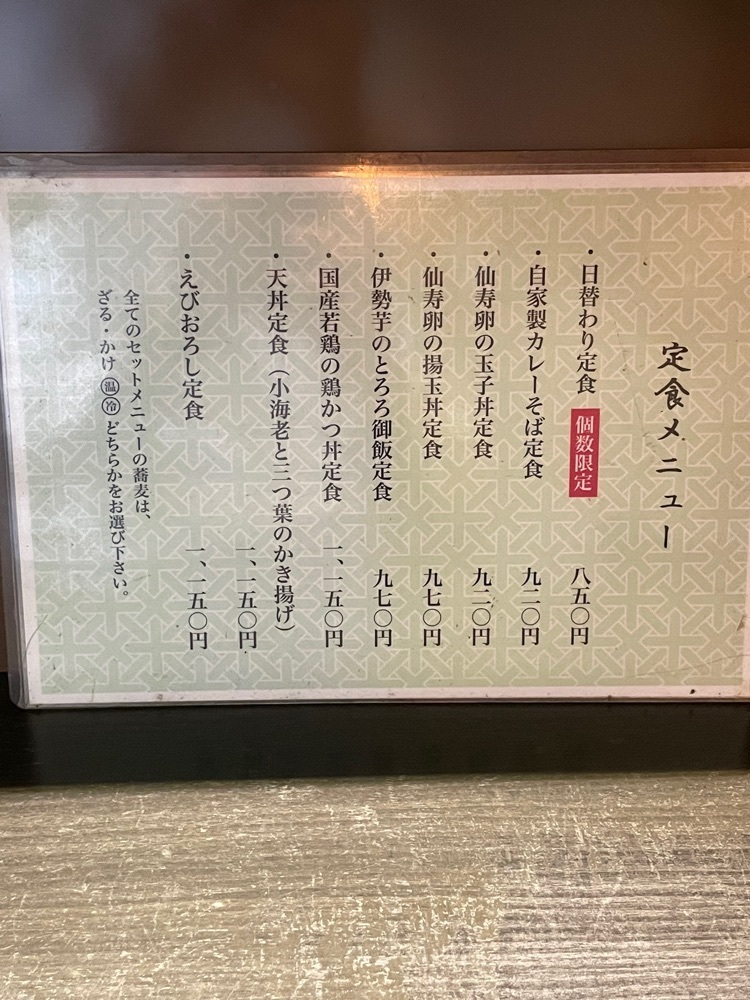 定食メニュー
・日替わり定食 個数限定 八五〇円
・自家製カレーそば定食 九二〇円
・仙寿卵の玉子丼定食 九二〇円
・仙寿卵の揚玉丼定食 九七〇円
・伊勢芋のとろろ御飯定食 九七〇円
・国産若鶏の鶏かつ丼定食 一、一五〇円
・天丼定食（小海老と三つ葉のかき揚げ）
一、一五〇円
・えびおろし定食 一、一五〇円
全てのセットメニューの蕎麦は、
ざる・かけ㊤温㊤冷どちらかをお選び下さい。